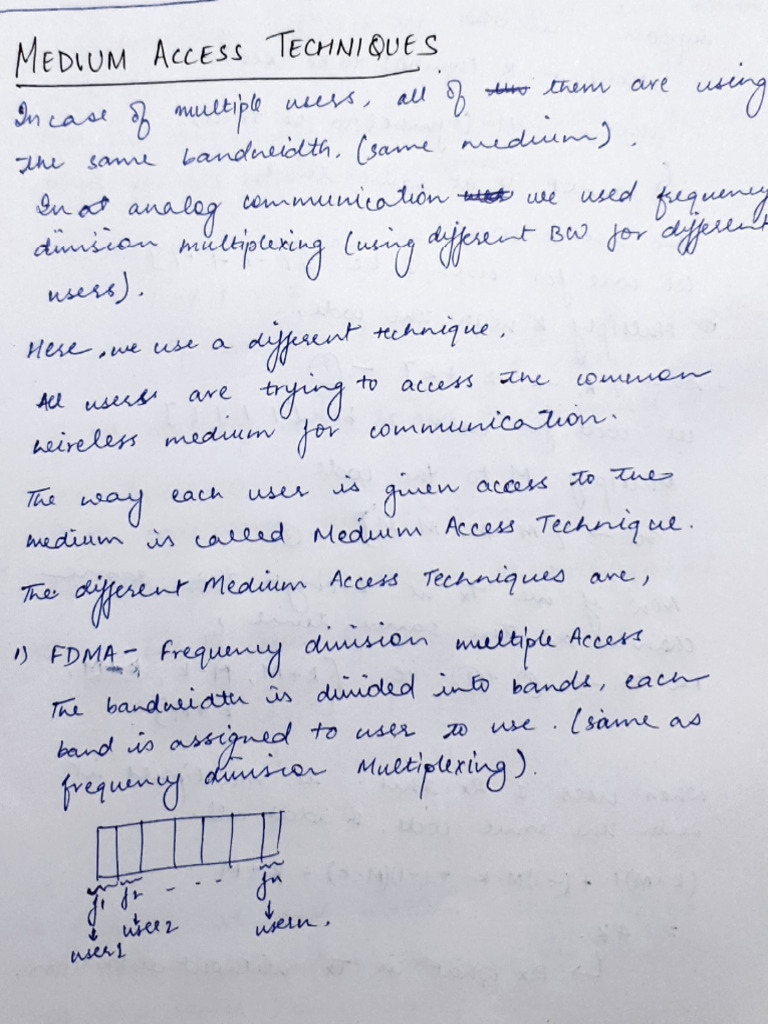 MEDIUM ACCESS TECHNIQUES.
In case of multiple users, all of them are using
the same bandwidth. (same medium).
In analog communication we used frequency
division multiplexing (using different BW for different
users).
Here, we use a different technique.
All users are trying to access the common
wireless medium for communication.
The way each user is given access to the
medium is called Medium Access Technique.
The different Medium Access Techniques are,
1) FDMA - Frequency division multiple Access
The bandwidth is divided into bands, each
band is assigned to user to use. (same as
frequency division Multiplexing).
f1 f2 - - - fn
user1 user2 usern.